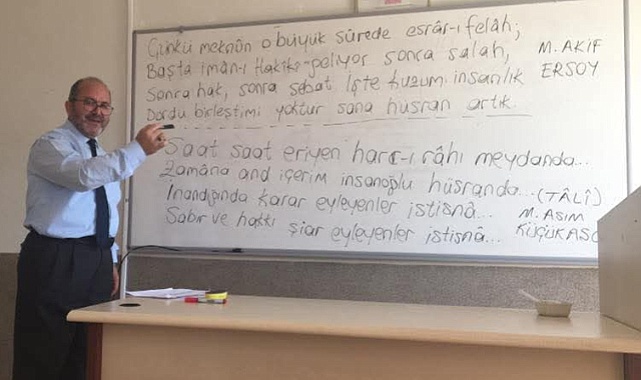 Çünkü meknûn o büyük sûrede esrâr-ı felâh;
Başta imân-ı Hakîkî geliyor sonra salah,
Sonra hak, sonra sebat İşte kuzum insanlık
Dördü birleştimi yoktur sana hüsran artık.
M. AKİF
ERSOY
Saat saat eriyen harc-ı râhı meydanda...
Zamâna and içerim insanoğlu hüsranda...(TÂLÎ)
İnandığında karar eyleyenler istisnâ...
Sabır ve hakkı şiar eyleyenler istisnâ...
M. ASIM
KÜÇÜKASC